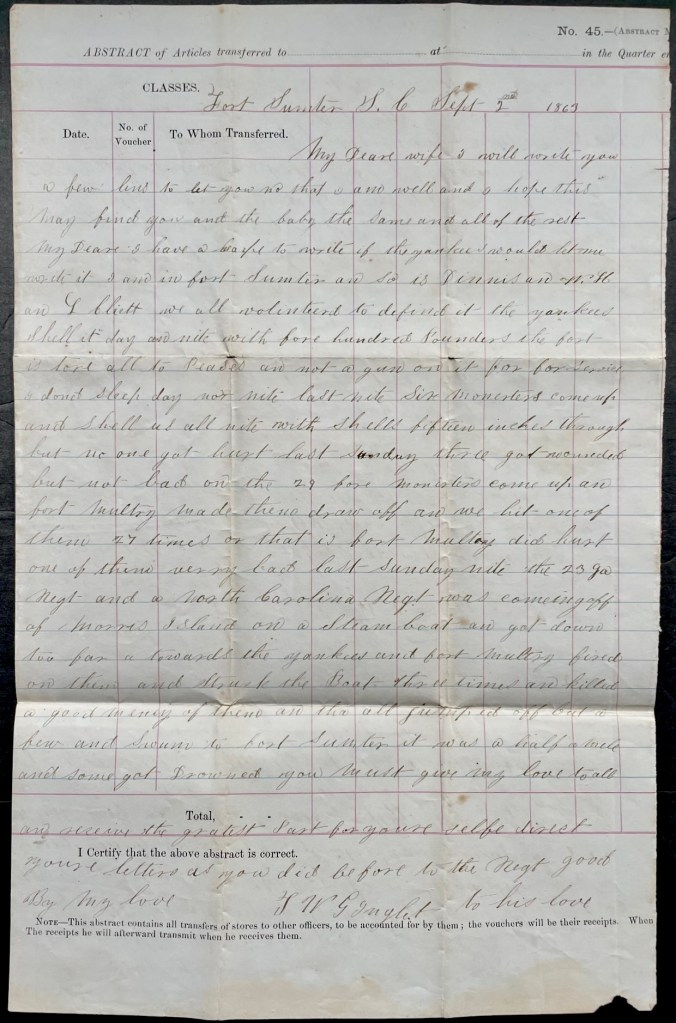 No. 45.—(ABSTRACT
ABSTRACT of Articles transferred to at in the Quarter
CLASSES.
Fort Sumter S. C Sept 2nd 1863
Date. No. of Voucher To Whom Transferred.
My Deare wife I will write you
a few lins to let you no that I am well and I hope this
may find you and the baby the same and all of the rest
My Deare I have a to write if the yankees would let me
write it I am in fort Sumter an so is Dinnis an W. H
an L Cliett we all volinturd to defind it the yankees
Shell it day an nite with fore hundred Pounders the fort
is tore all to Peases an not a gun on it for
a dond Sleep day nor nite last nite Six Monerters come up
and shell us all nite with Shells fifteen inches through
but no one got hurt last Sunday three got wounded
but not bad on the 29 fore monerters come up an
fort Multry made them draw off an we hit one of
them 27 times or that is fort Multry did hurt
one of them verry bad last Sunday nite the 23 ga
Regt and a North Carolina Regt was comeing off
of Morris Island on a Steam boat an got down
too far a towards the yankees and fort Multry fired
on them and struck the Boat three times an killed
a good meney of them an tha all jumped off but a
few and Swum to fort Sumter it was a half a mile
and some got Drowned you must give my love to all
Total,
and receive the gratist Part for youre selfe direct
I Certify that the above abstract is correct.
youre letters as you did before to the Regt good
By My love W G Inglet to his love
NOTE—This abstract contains all transfers of stores to other officers, to be accounted for by them; the vouchers will be their receipts. When
The receipts he will afterward transmit when he receives them.